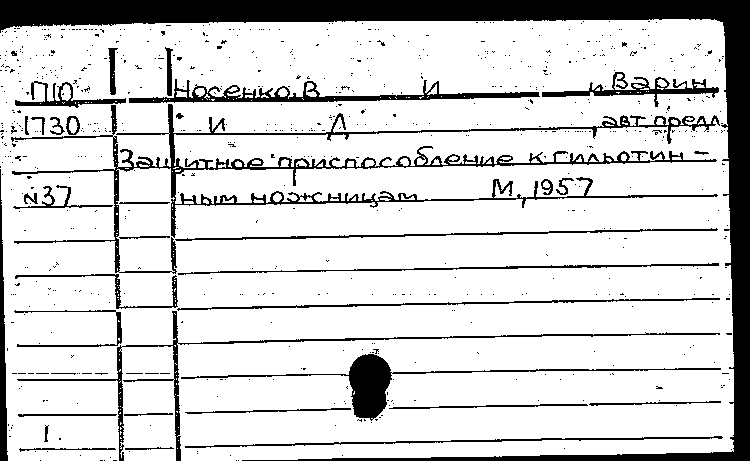 П10 Носенко, В И и Варин,
1730 И Д , авт предл.
Защитное приспособление к гильотин-
N37 ным ножницам М., 1957
1.